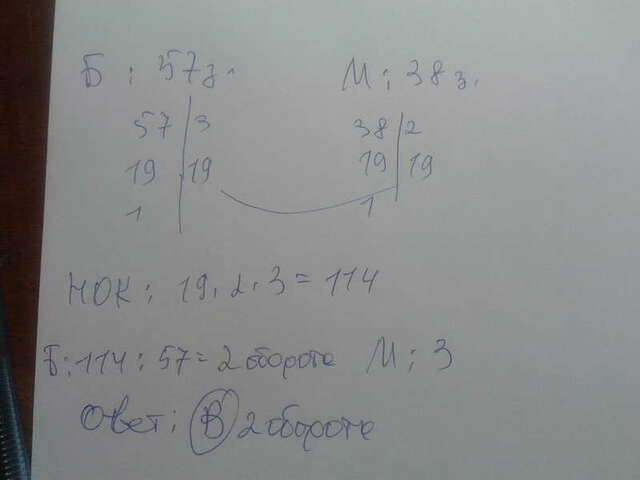 Б : 57 з. М : 38 з.
57 | 3 38 | 2
19 | 19 19 | 19
1 | 1 |
НОК : 19 . 2 . 3 = 114
Б : 114 : 57 = 2 оборота М : 3
Ответ : В 2 оборота